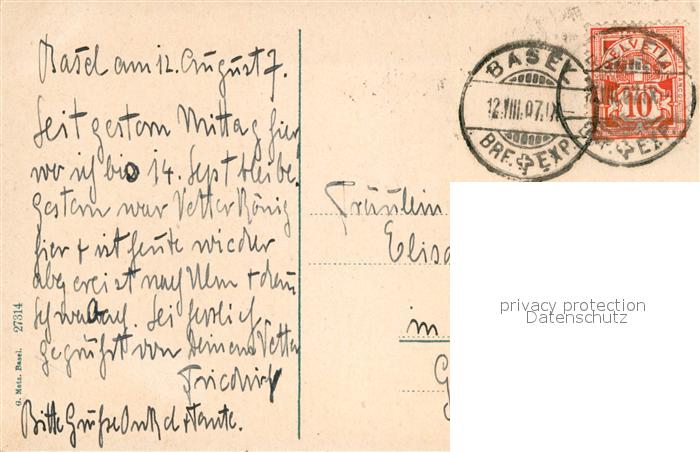 Basel am 12. August 7.
Seit gestern Mittag hier
wo ich bis 14. Sept bleibe.
Gestern war Vetter König
hier + ist heute wieder
abgereist nach Ulm + dann
Schwabach. Sei herzlich
gegrüßt von Deinem Vetter
Friedrich
Bitte Grüße Onkel + Tante.
G. Metz, Basel. 27314
BASEL
12.VIII.07.IX
BRF. EXP.
HELVETIA
10
Fräulein
Elisa
in
G
privacy protection
Datenschutz